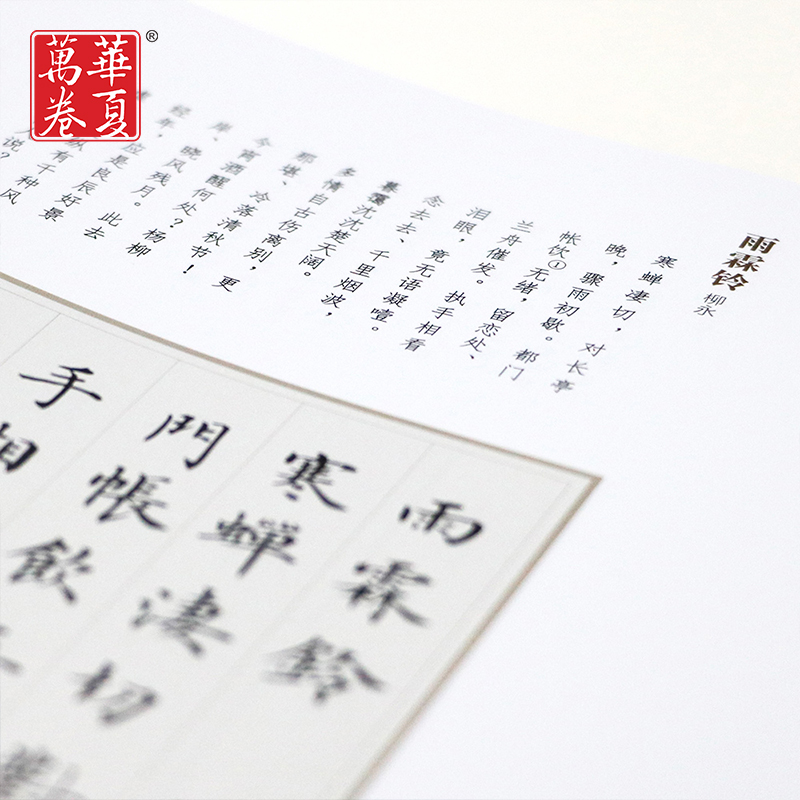 華夏
萬卷
®
雨霖铃 柳永
寒蝉凄切，对长亭
晚，骤雨初歇。都门
帐饮①无绪，留恋处、
兰舟催发。执手相看
泪眼，竟无语凝噎。
念去去、千里烟波，
暮霭沈沈楚天阔。
多情自古伤离别，更
那堪、冷落清秋节！
今宵酒醒何处？杨柳
岸、晓风残月。此去
经年，应是良辰好景
纵有千种风
人说？
雨霖鈴
寒蟬淒切
門帳飲
手相